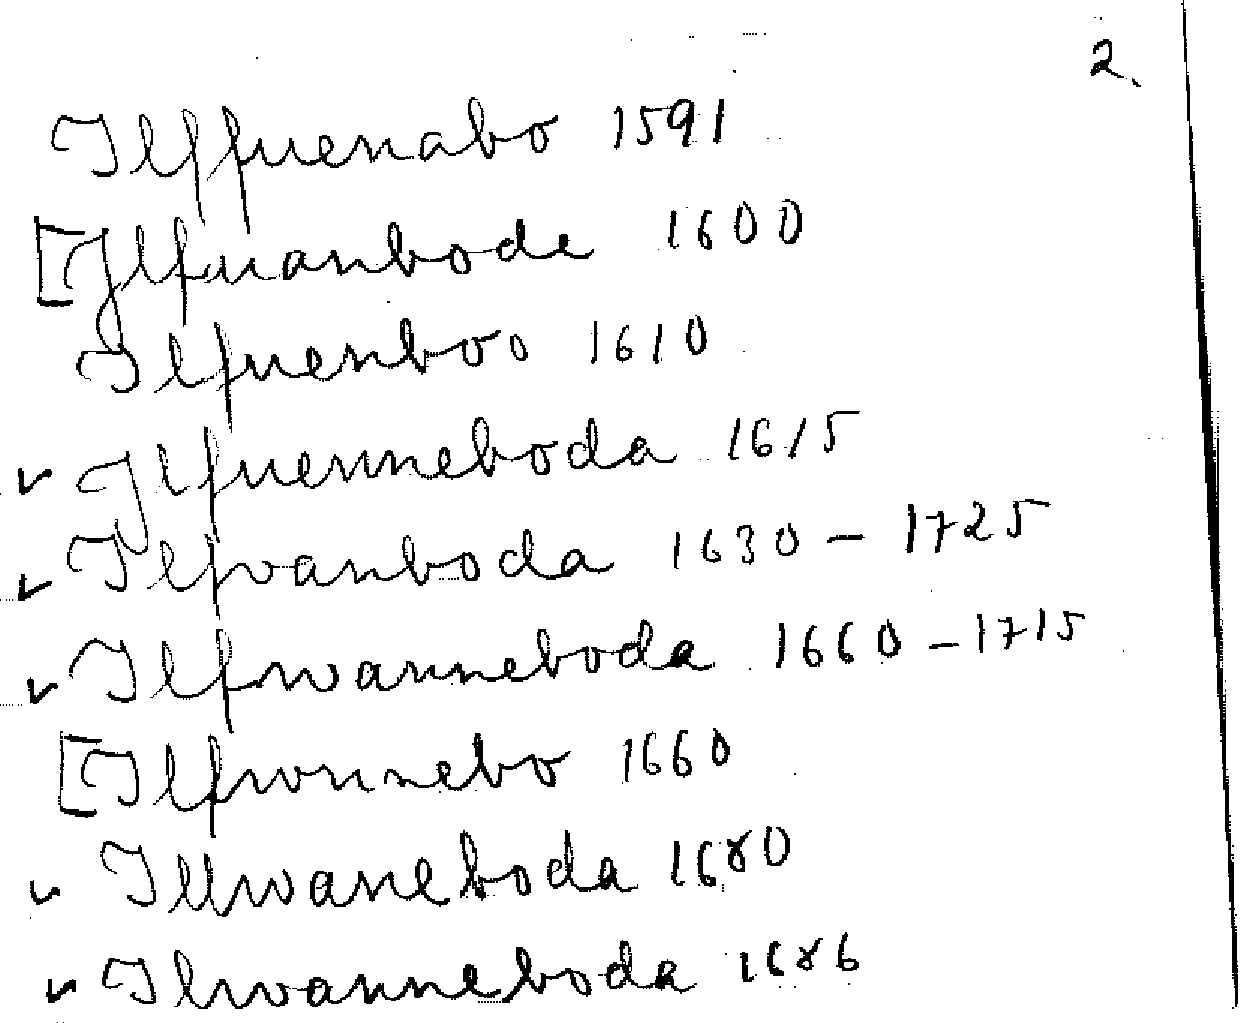 2.
Ilffuenabo 1591
[Jlfuanbode 1600
Ilfuenboo 1610
v Jlfuenneboda 1615
v Ilfvanboda 1630 – 1725
v Ilfwanneboda 1660 – 1715
[Ilfwonnebo 1660
v Illwaneboda 1680
v Ilwanneboda 1686